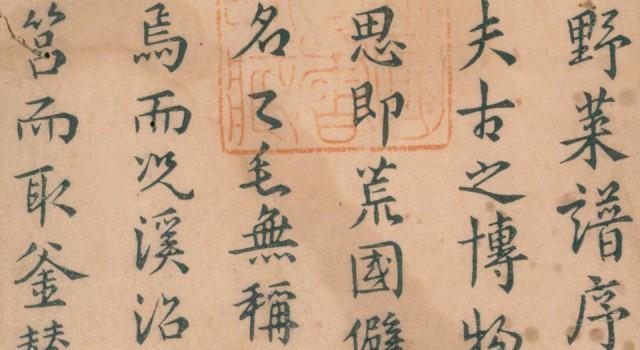 野菜譜序
夫古之博物
思即荒國僻
名毛無稱
焉而况溪沼
筥而取釜